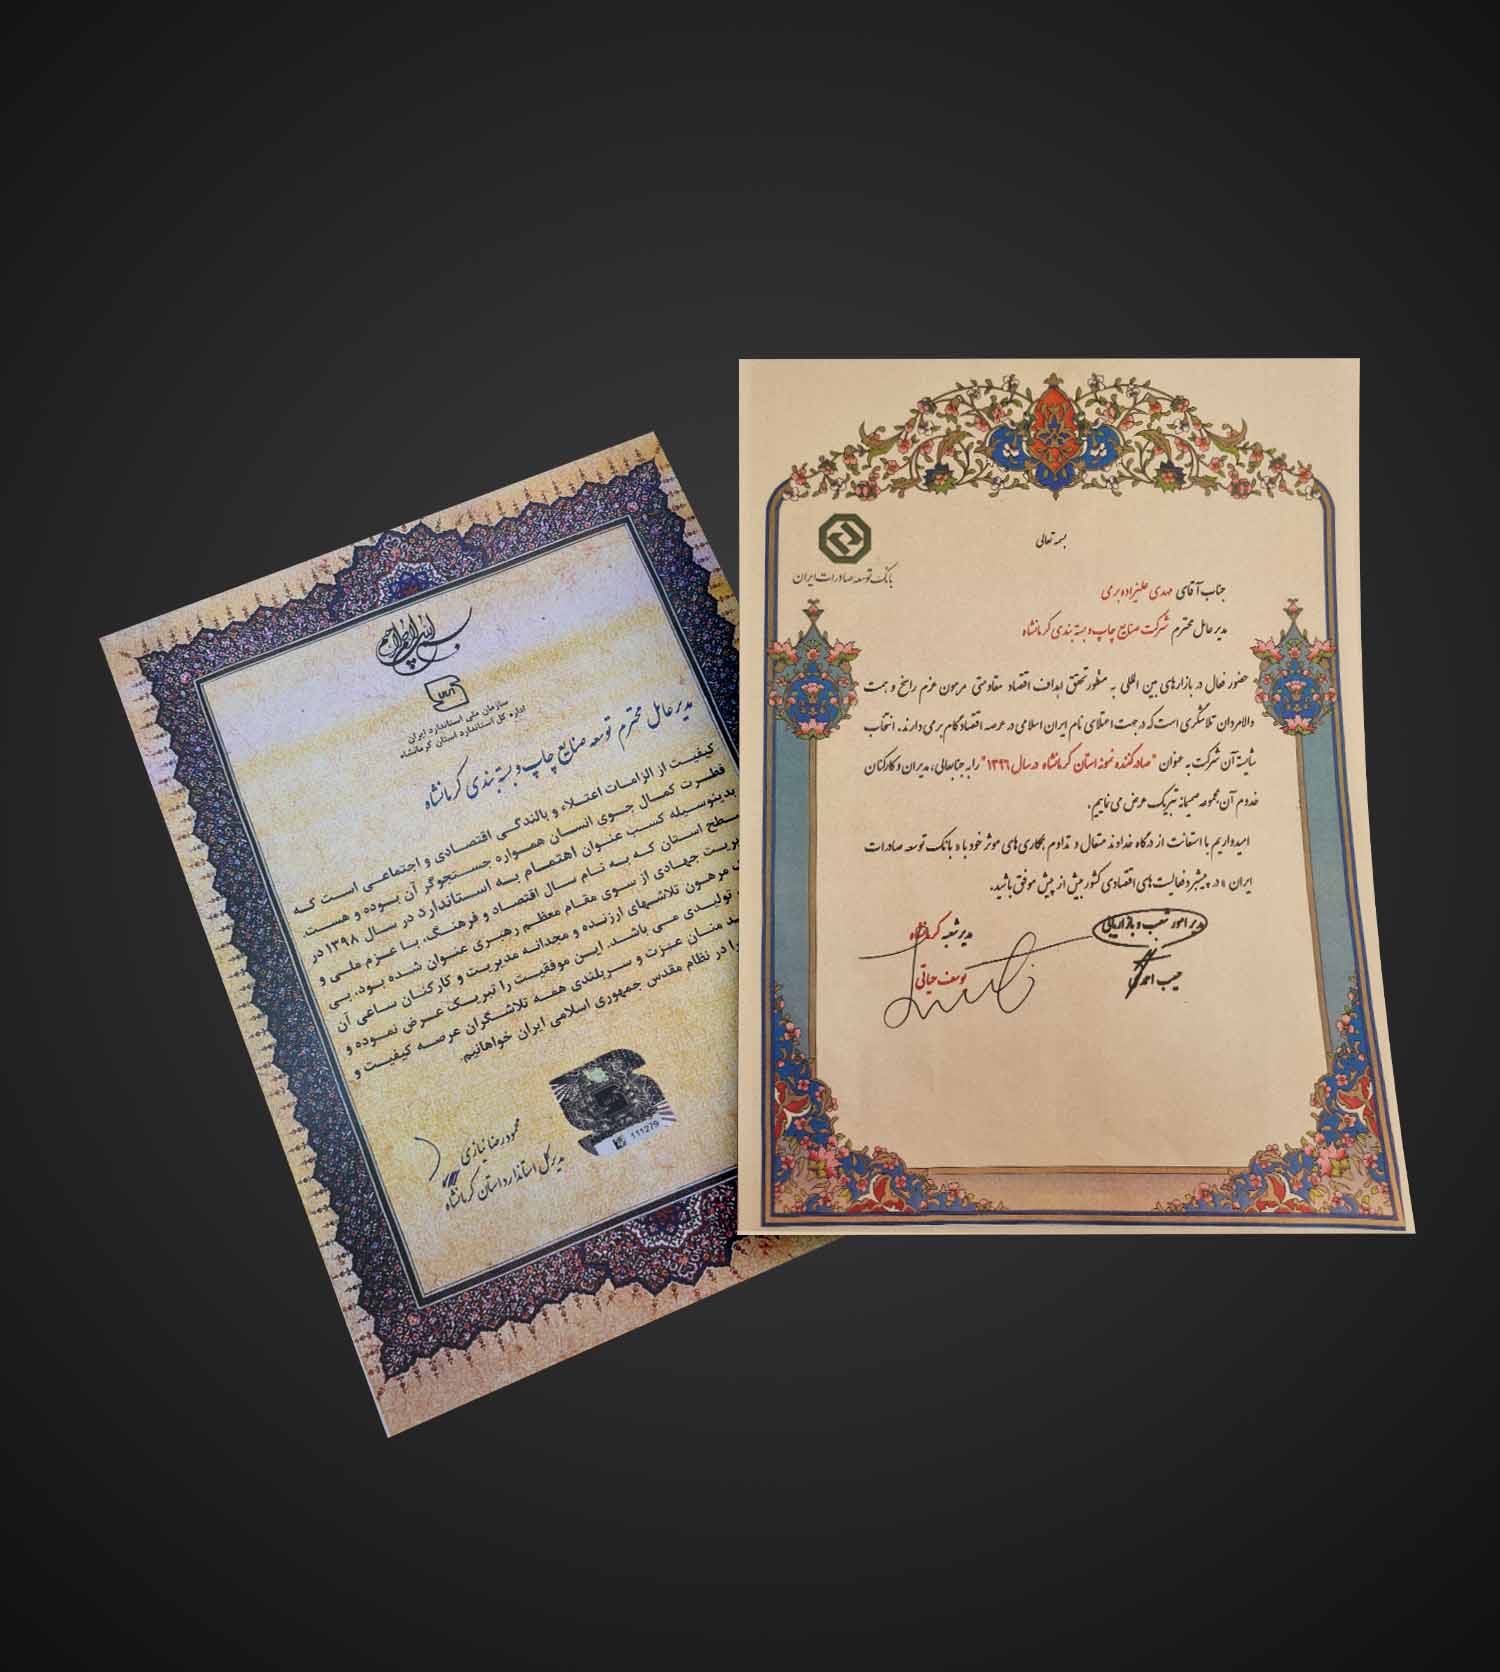 بسمه تعالی
بانک توسعه صادرات ایران
جناب آقای مهدی علیزاده بری
مدیرعامل محترم شرکت صنایع چاپ و بسته بندی کرمانشاه
حضور فعال در بازارهای بین المللی به منظور تحقق اهداف اقتصاد مقاومتی مرهون عزم راسخ و همت
والامردان تلاشگری است که در جهت اعتلای نام ایران اسلامی در عرصه اقتصاد گام برمی دارند. انتخاب
شایسته آن شرکت به عنوان "صادرکننده نمونه استان کرمانشاه در سال ۱۳۹۶" را به جنابعالی، مدیران و کارکنان
خدوم آن مجموعه صمیمانه تبریک عرض می نماییم.
امیدواریم با استعانت از درگاه خداوند متعال و تداوم همکاری های موثر خود با « بانک توسعه صادرات
ایران » در پیشبرد فعالیت های اقتصادی کشور بیش از پیش موفق باشید.
مدیر امور شعب و بازاریابی
حبیب احمدی
مدیر شعبه کرمانشاه
یوسف حیاتی
بسم الله الرحمن الرحیم
سازمان ملی استاندارد ایران
اداره کل استاندارد استان کرمانشاه
مدیرعامل محترم توسعه صنایع چاپ و بسته بندی کرمانشاه
کیفیت از الزامات اعتلاء و بالندگی اقتصادی و اجتماعی است که
فطرت کمال جوی انسان همواره جستجوگر آن بوده و هست.
بدینوسیله کسب عنوان اهتمام به استاندارد در سال ۱۳۹۸ در
سطح استان که به نام سال اقتصاد و فرهنگ، با عزم ملی و
مدیریت جهادی از سوی مقام معظم رهبری عنوان شده بود، بی
مرهون تلاشهای ارزنده و مجدانه مدیریت و کارکنان ساعی آن
تولیدی می باشد. این موفقیت را تبریک عرض نموده و
منان عزت و سربلندی همه تلاشگران عرصه کیفیت و
را در نظام مقدس جمهوری اسلامی ایران خواهانیم.
111279
محمودرضا نیازی
مدیرکل استاندارد استان کرمانشاه